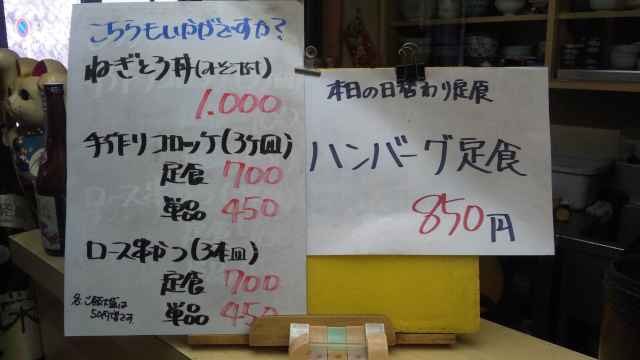 こちらもいかがですか?
ねぎとろ丼(みそ汁付)
1.000
手作りコロッケ(3ケ皿)
定食 700
単品 450
ロース串かつ(3本皿)
定食 700
単品 450
ご飯大盛は
50円増です。
本日の日替わり定食
ハンバーグ定食
850円